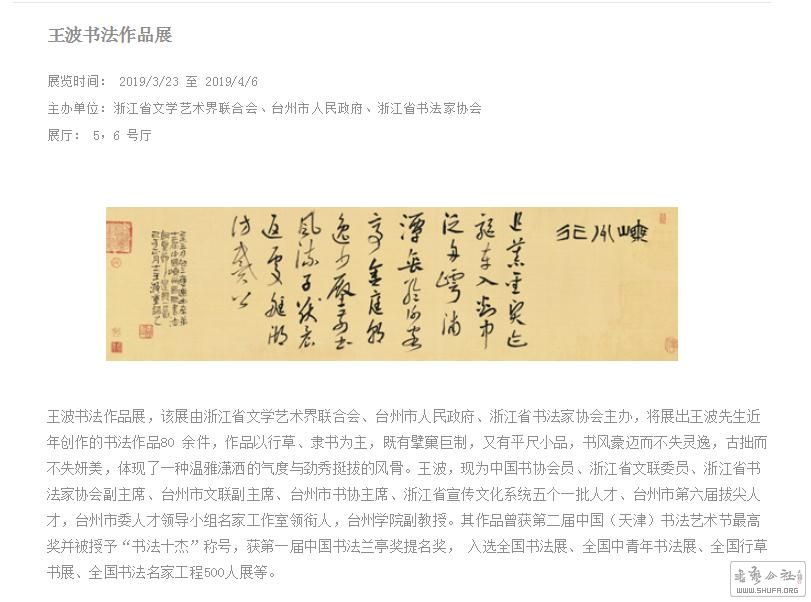 王波书法作品展
展览时间： 2019/3/23 至 2019/4/6
主办单位：浙江省文学艺术界联合会、台州市人民政府、浙江省书法家协会
展厅： 5，6 号厅
嵊州行
驱车入剡中
泛舟嶀浦
王波书法作品展，该展由浙江省文学艺术界联合会、台州市人民政府、浙江省书法家协会主办，将展出王波先生近
年创作的书法作品80 余件，作品以行草、隶书为主，既有擘窠巨制，又有平尺小品，书风豪迈而不失灵逸，古拙而
不失妍美，体现了一种温雅潇洒的气度与劲秀挺拔的风骨。王波，现为中国书协会员、浙江省文联委员、浙江省书
法家协会副主席、台州市文联副主席、台州市书协主席、浙江省宣传文化系统五个一批人才、台州市第六届拔尖人
才，台州市委人才领导小组名家工作室领衔人，台州学院副教授。其作品曾获第二届中国（天津）书法艺术节最高
奖并被授予“书法十杰”称号，获第一届中国书法兰亭奖提名奖， 入选全国书法展、全国中青年书法展、全国行草
书展、全国书法名家工程500人展等。
WWW.SHUFA.ORG